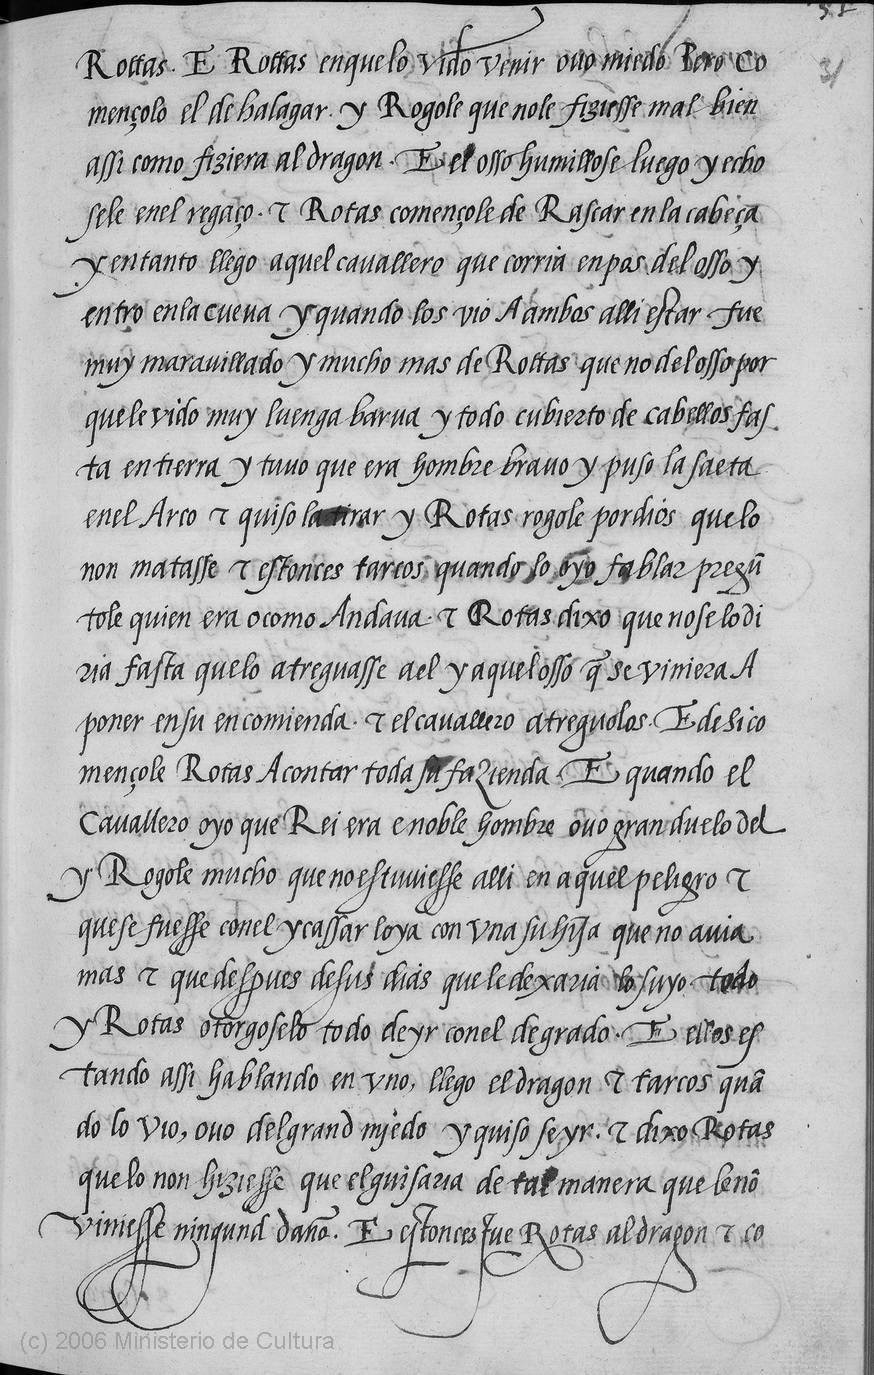 51
31
Rottas. E Rottas enquelo vido venir ouo miedo Pero Co
mençolo el de halagar. y Rogole que nole fiziesse mal bien
assi como fiziera al dragon. E el osso humillose luego y echo
sele enel regaço. τ Rotas començole de Rascar en la cabeça
y entanto llego aquel cauallero que corria enpos del osso y
entro en la cueua y quando los vio A ambos alli estar fue
muy marauillado y mucho mas de Rottas que no del osso por
que le vido muy luenga barua y todo cubierto de cabellos fas
ta en tierra y tuuo que era hombre brauo y puso la saeta
enel Arco τ quiso la tirar y Rotas rogole por dios que lo
non matasse τ estonces tarcos quando lo oyo fablar pregũ
tole quien era o como Andaua. τ Rotas dixo que no se lo di
ria fasta que lo atreguasse a el y aquel osso q̃ se viniera A
poner en su encomienda. τ el cauallero atreguolos. E de si co
mençole Rotas A contar toda su fazienda. E quando el
Cauallero oyo que Rei era e noble hombre ouo gran duelo del
y Rogole mucho que no estuuiesse alli en aquel peligro τ
que se fuesse conel y cassar lo ya con vna su hija que no auia
mas τ que despues de sus dias que le dexaria lo suyo todo
y Rotas otorgoselo todo de yr conel de grado. E ellos es
tando assi hablando en vno, llego el dragon τ tarcos quã
do lo vio, ouo del grand miedo y quiso se yr. τ dixo Rotas
que lo non hiziesse que el guisaria de tal manera que le nõ
viniesse ningund daño. E estonces fue Rotas al dragon τ co
(c) 2006 Ministerio de Cultura